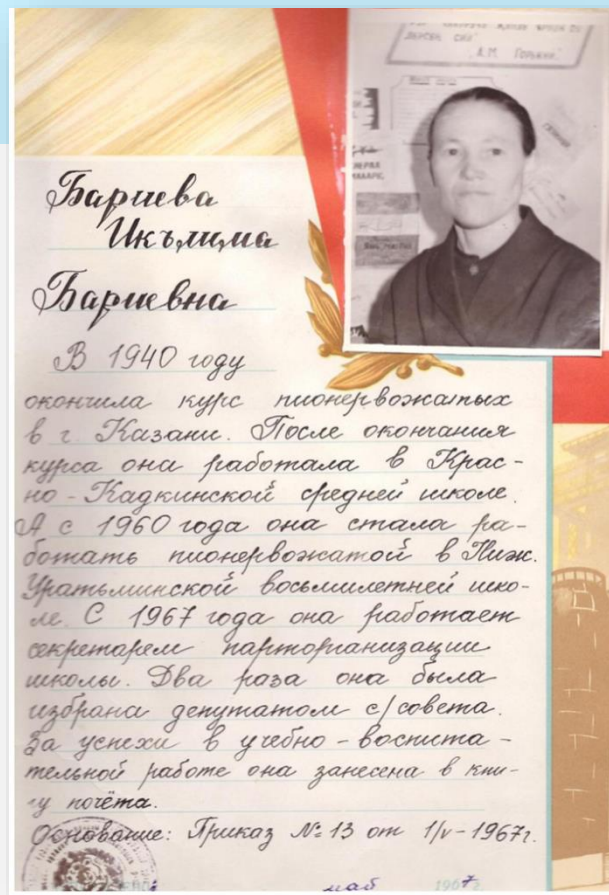 А.М. Горький.
Бариева
Икълима
Бариевна
В 1940 году
окончила курс пионервожатых
в г. Казани. После окончания
курса она работала в Крас-
но-Кадкинской средней школе.
А с 1960 года она стала ра-
ботать пионервожатой в Ниж.
Уратьминской восьмилетней шко-
ле. С 1967 года она работает
секретарем парторганизации
школы. Два раза она была
избрана депутатом с/совета.
За успехи в учебно-воспита-
тельной работе она занесена в кни-
гу почёта.
Основание: Приказ №13 от 1/v-1967г.
май 1967